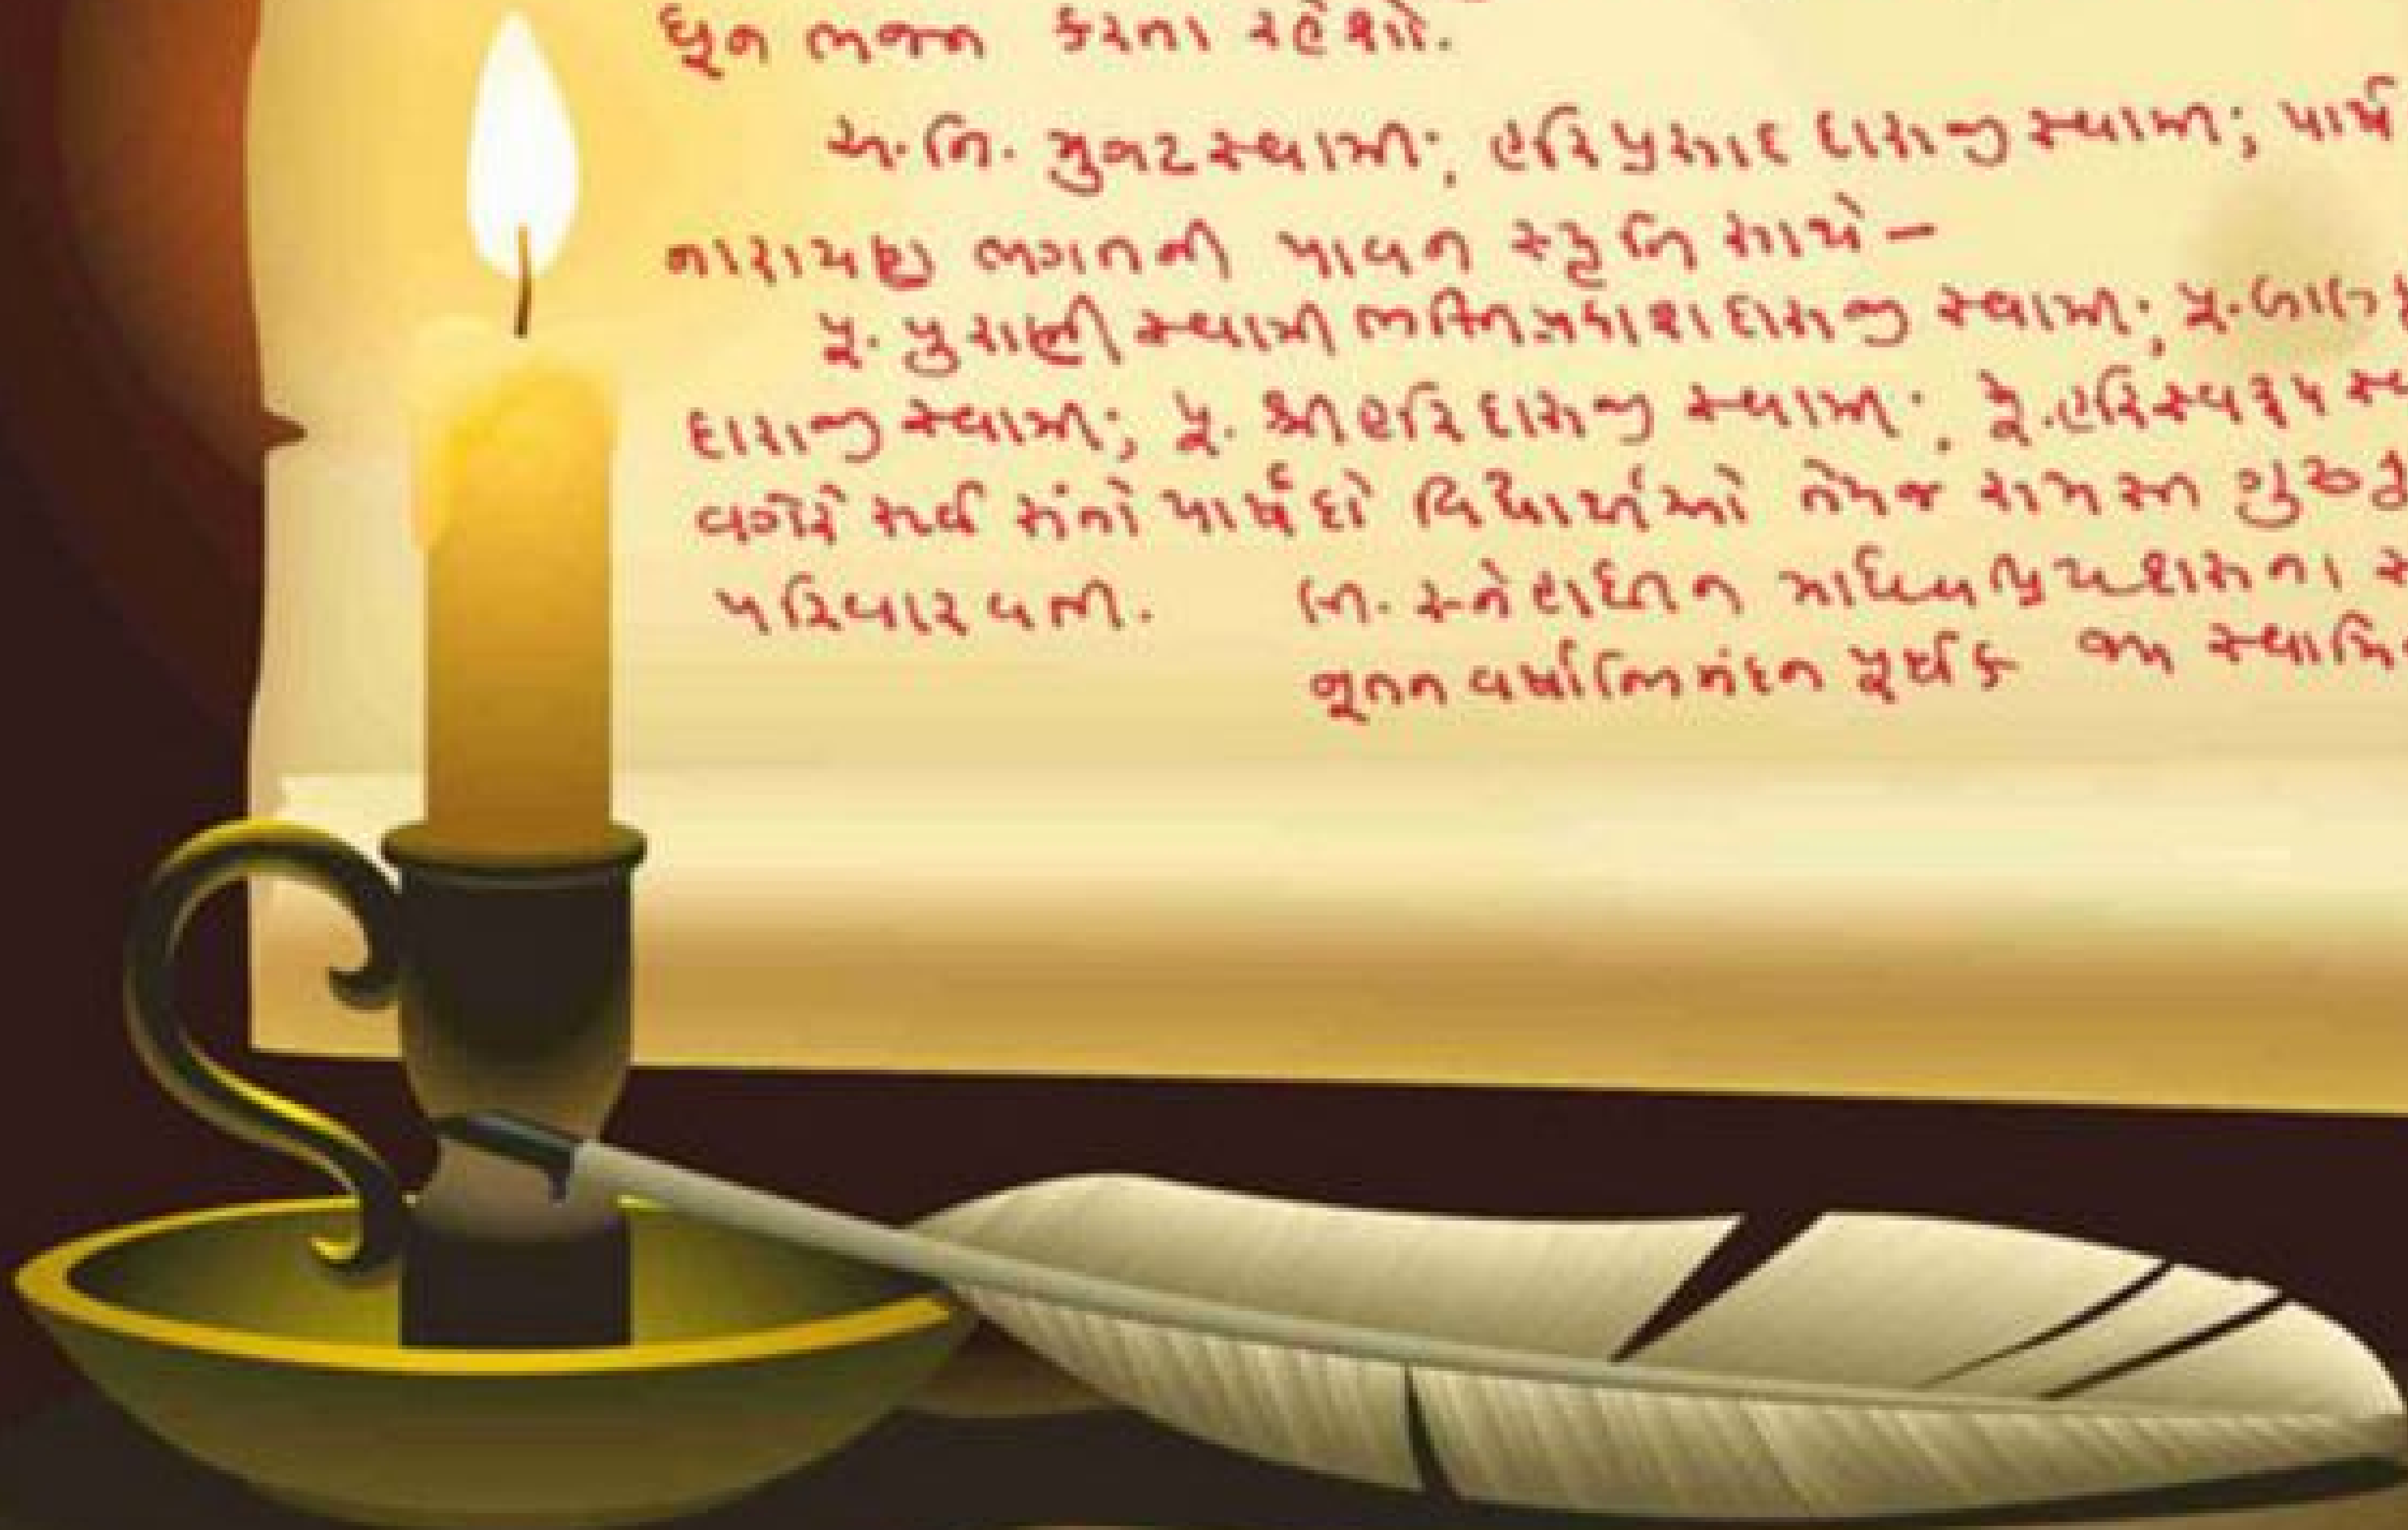 ધૂન ભજન કરતા રહેશો.
અ.નિ. મુગટસ્વામી; હરિપ્રસાદ દાસજી સ્વામી; પાર્ષ
નારાયણ ભગતની પાવન સ્મૃતિ સાથે –
પૂ. પુરાણી સ્વામી ભક્તિપ્રકાશદાસજી સ્વામી; પૂ.
દાસજી સ્વામી; પૂ. શ્રીહરિદાસજી સ્વામી; પૂ. હરિસ્વરૂપ
વગેરે સર્વ સંતો પાર્ષદો વિદ્યાર્થીઓ તેમજ સમસ્ત ગુરુકુ
પરિવારવતી. લિ. સ્નેહાધીન માધવપ્રિયદાસના
નૂતન વર્ષાભિનંદન પૂર્વક જય સ્વામિ